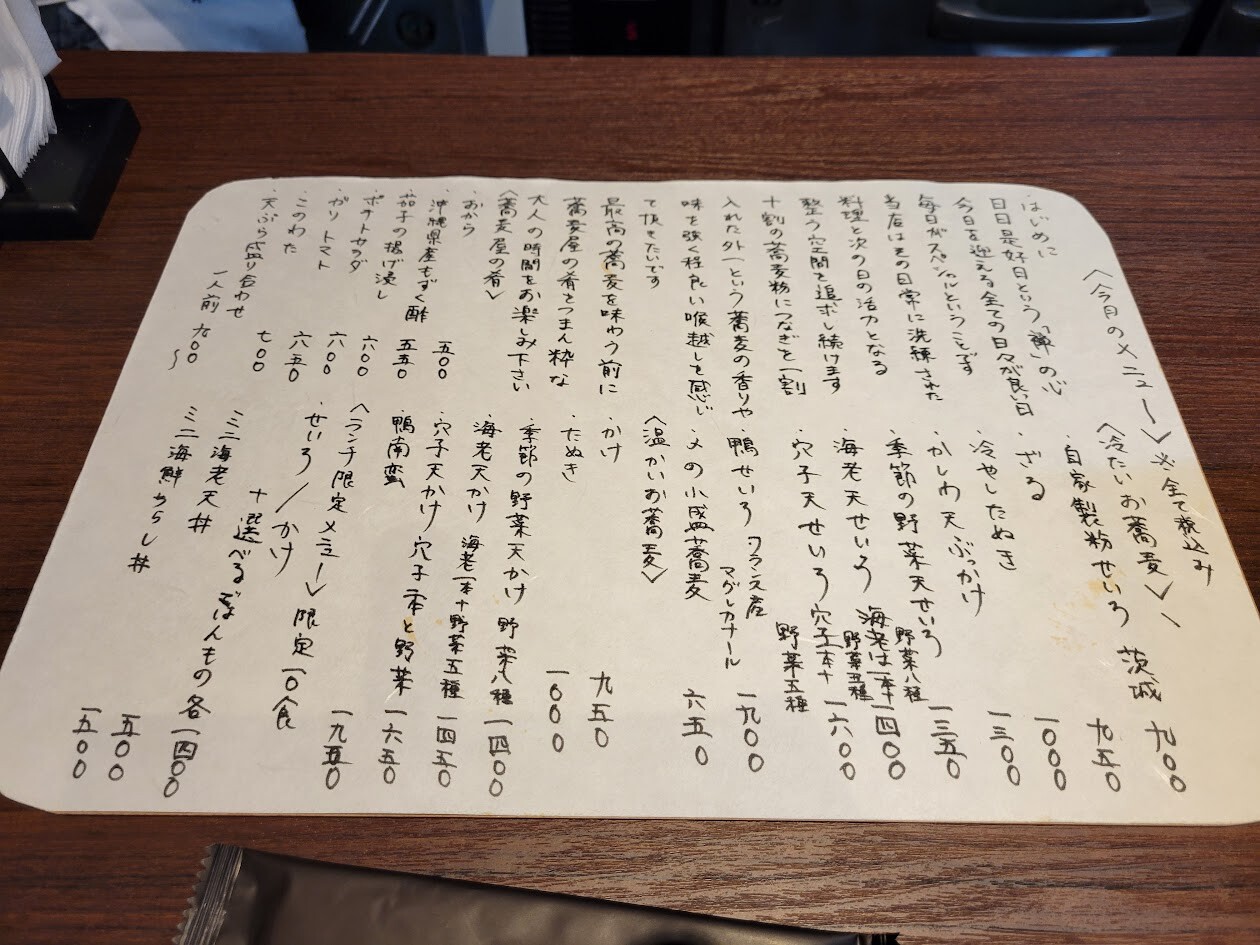 〈今月のメニュー〉※全て税込み
はじめに
日日是好日という「禅」の心
今日を迎える全ての日々が良い日
毎日がスペシャルということです
当店は その日常に洗練された
料理と次の日の活力となる
整う空間を追求し続けます
十割の蕎麦粉につなぎを一割
入れた外一という蕎麦の香りや
味を強く程良い喉越しを感じ
て頂きたいです
最高の蕎麦を味わう前に
蕎麦屋の肴をつまん粋な
大人の時間をお楽しみ下さい
〈蕎麦屋の肴〉
・おから 五〇〇
・沖縄県産もずく酢 五五〇
・茄子の揚げ浸し 六〇〇
・ポテトサラダ 六〇〇
・ガリトマト 六五〇
・このわた 七〇〇
・天ぷら盛り合わせ
一人前 九〇〇〜
〈冷たいお蕎麦〉
・自家製粉せいろ 茨城 九〇〇
・ざる 九五〇
・冷やしたぬき 一〇〇〇
・かしわ天ぶっかけ 一三〇〇
・季節の野菜天せいろ 野菜八種 一三五〇
・海老天せいろ 海老は一本 野菜五種 一四〇〇
・穴子天せいろ 穴子一本+ 野菜五種 一六〇〇
・鴨せいろ フランス産 マグレカナール 一九〇〇
・〆の小盛蕎麦 六五〇
〈温かいお蕎麦〉
・かけ 九五〇
・たぬき 一〇〇〇
・季節の野菜天かけ 野菜八種 一四〇〇
・海老天かけ 海老一本+野菜五種 一四五〇
・穴子天かけ 穴子一本と野菜 一六五〇
・鴨南蛮 一九五〇
〈ランチ限定メニュー〉限定一〇食
・せいろ/かけ
+選べるごはんもの 各一四〇〇
ミニ海老天丼 一五〇〇
ミニ海鮮ちらし丼 一五〇〇